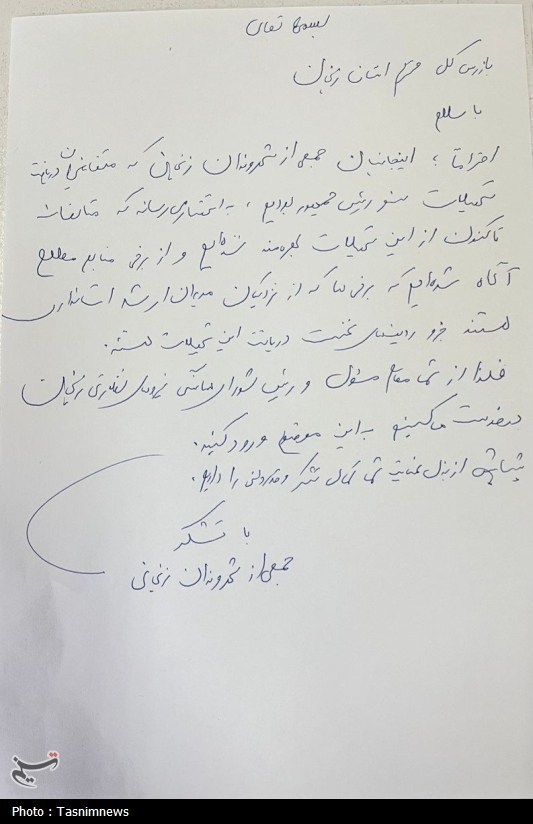 بسمه تعالی
بازرس کل محترم استان زنجان
با سلام
احتراماً ؛ اینجانبان جمعی از شهروندان زنجان که متقاضیان دریافت
تسهیلات سفر رئیس جمهور بودیم ، به استحضار می‌رساند که متاسفانه
تاکنون از این تسهیلات بهره‌مند نشده‌ایم و از برخی منابع مطلع
آگاه شده‌ایم که برخی‌ها که از نزدیکان مدیران ارشد استانداری
هستند جزو ردیف‌های نخست دریافت این تسهیلات هستند.
فلذا از شما مقام مسئول و رئیس شورای هماهنگی نهادهای نظارتی زنجان
درخواست می‌کنیم به این موضوع ورود کنید.
پیشاپیش از بذل عنایت شما کمال تشکر و قدردانی را داریم.
با تشکر
جمعی از شهروندان زنجانی
تسنیم
Photo : Tasnimnews